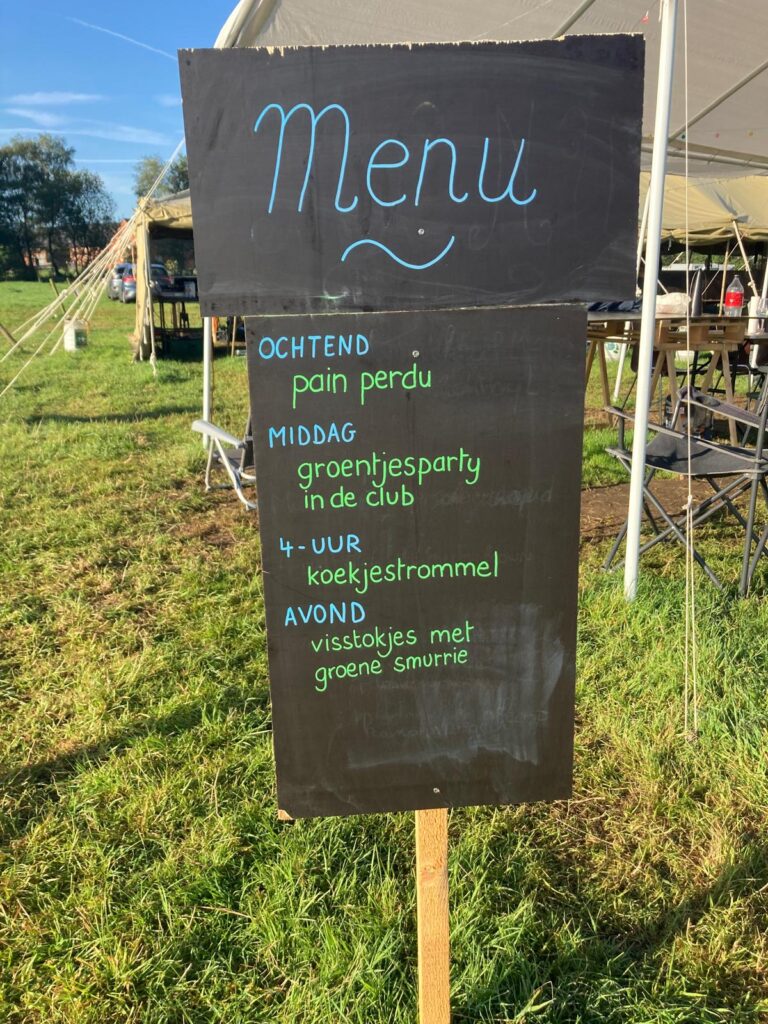 Menu
OCHTEND
pain perdu
MIDDAG
groentjesparty
in de club
4-UUR
koekjestrommel
AVOND
visstokjes met
groene smurrie